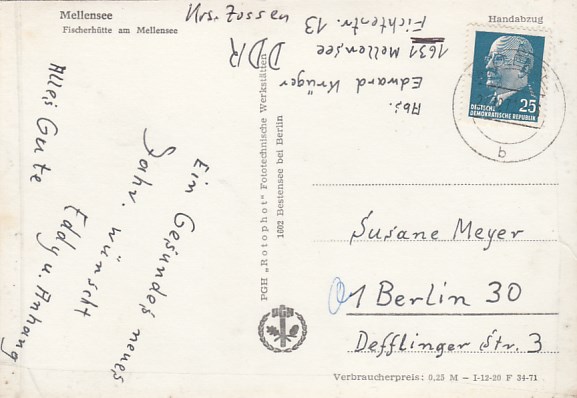 Mellensee
Fischerhütte am Mellensee
Handabzug
Abs.
Edward Krüger
1631 Mellensee
Fichtenstr. 13
Krs. Zossen
DDR
DEUTSCHE
DEMOKRATISCHE REPUBLIK
25
b
Ein Gesundes neues
Jahr. wünscht
Eddy u. Anhang
Alles Gute
PGH „Rotophot" Fototechnische Werkstätten
1602 Bestensee bei Berlin
Susane Meyer
1 Berlin 30
Defflinger Str. 3
Verbraucherpreis: 0,25 M - I-12-20 F 34-71